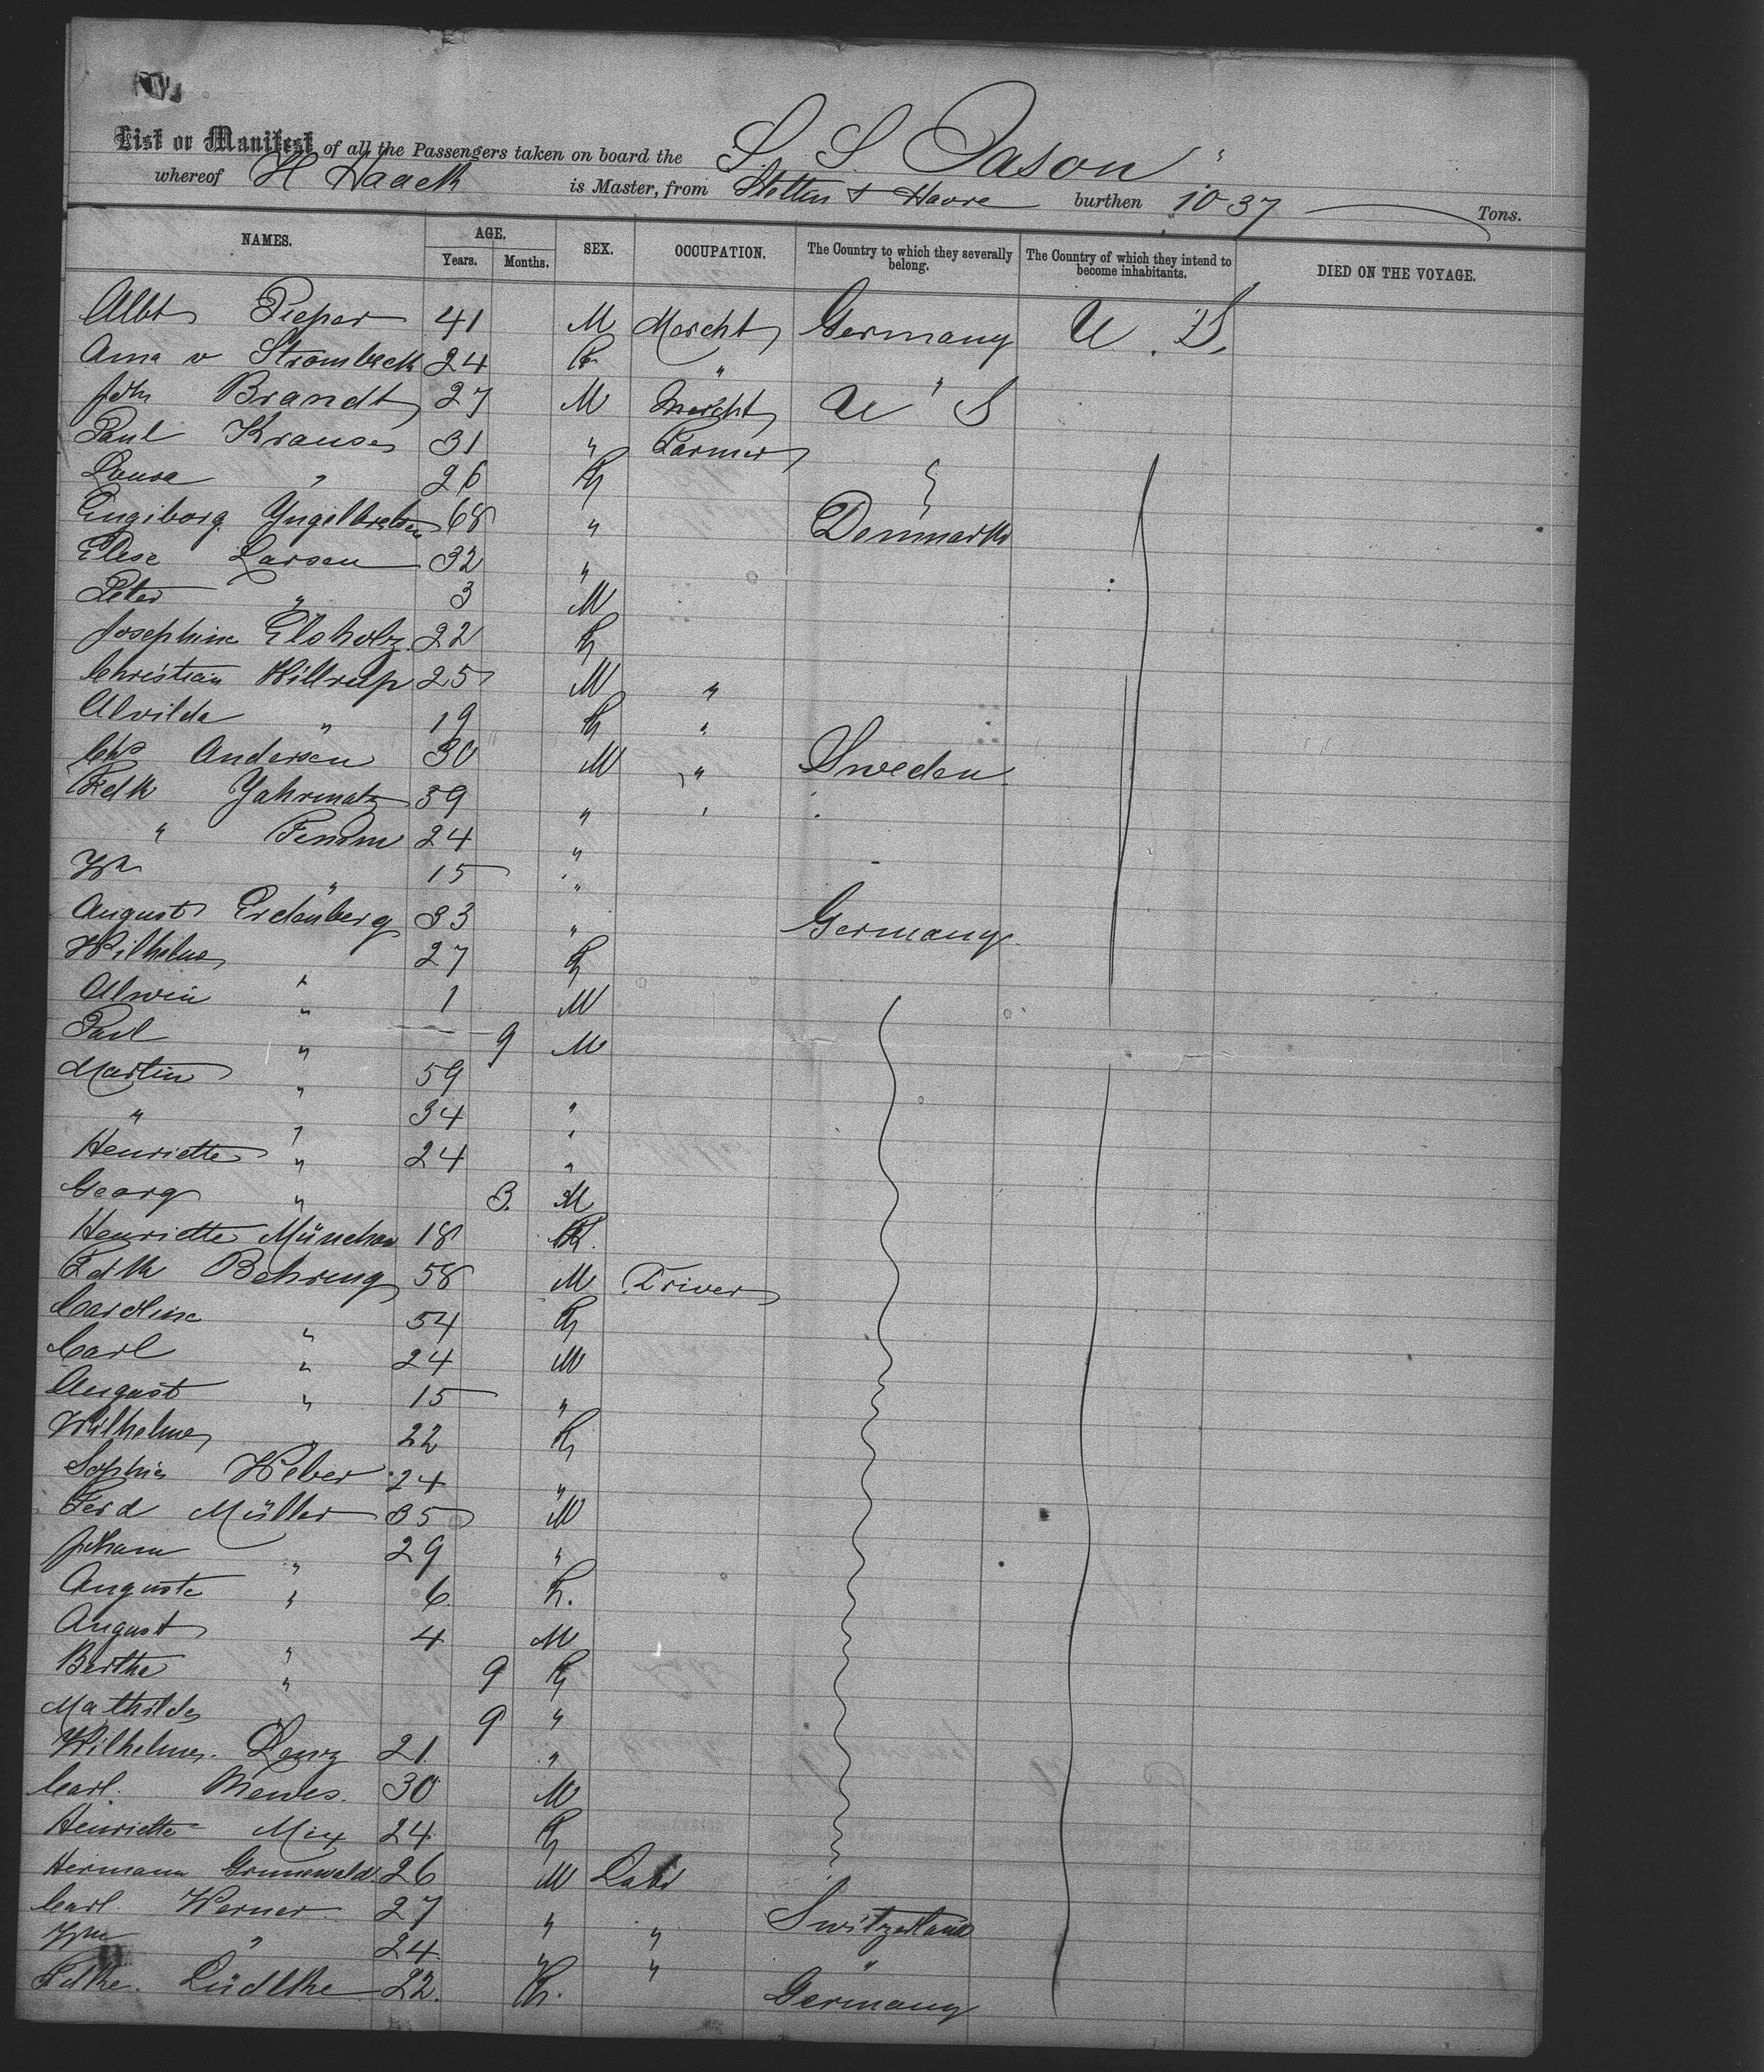 List or Manifest of all the Passengers taken on board the S. S. Jason
whereof H Haack is Master, from Stettin & Havre burthen 1037 Tons.
NAMES. AGE. SEX. OCCUPATION. The Country to which they severally belong. The Country of which they intend to become inhabitants. DIED ON THE VOYAGE.
Years. Months.
Albt Pieper 41 M Mercht Germany U. S.
Anna v Strombeck 24 F " "
John Brandt 27 M Mercht U S
Paul Krause 31 " Farmer
Laura " 26 F
Engiborg 68 " Denmark
Elise Larsen 32 "
Peter " 3 M
Josephine Elsholz 22 F
Christian Hillrup 25 M "
Alvilda " 19 F "
Chs Andersen 30 M " Sweden
Fdk Yahrmatz 39 " "
" 24 "
Wm " 15 "
August Erdenberg 33 " Germany
Wilhelme " 27 F
Alwin " 1 M
Paul " 9 M
Martin " 59
" " 34 "
Henriette " 24 "
Georg " 3. M
Henriette München 18 F.
Fdk Behring 58 M Driver
Caroline " 54 F
Carl " 24 M
August " 15 "
Wilhelme " 22 F
Sophie Weber 24 "
Ferd Müller 35 M
Johann " 29 "
Auguste " 6 F.
August " 4 M
Bertha " 9 F
Mathilde " 9 "
Wilhelme. Lenz 21. "
Carl. Mewes. 30 M
Henriette Mix 24. F
Hermann Grunewald. 26 M Labr
Carl. Werner. 27 " " Switzerland
Wm " 24. " " "
Fdke. Lüdtke 22. F. Germany